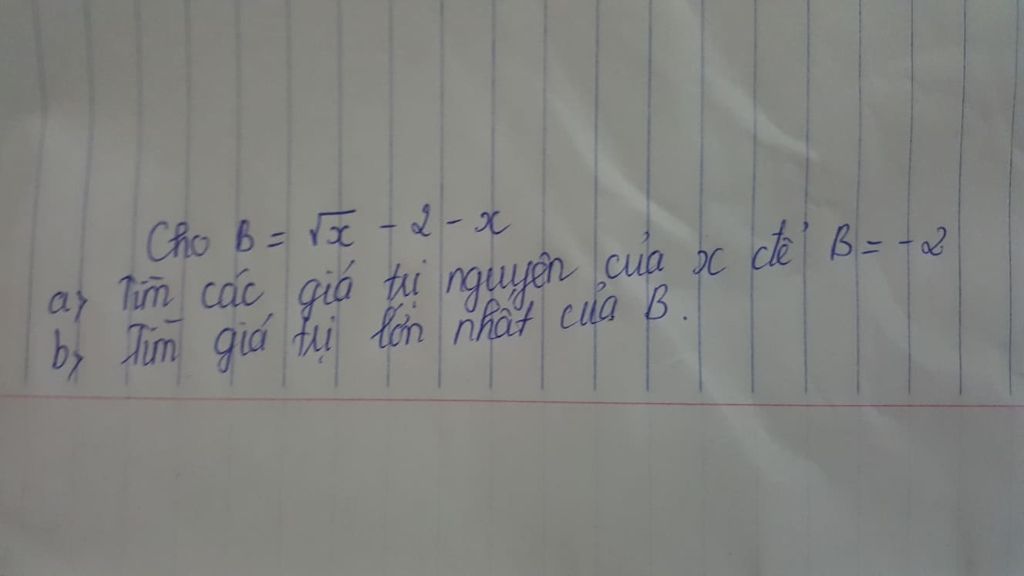 Cho B = √x - 2 - x
a) Tìm các giá trị nguyên của x để B = -2
b) Tìm giá trị lớn nhất của B.